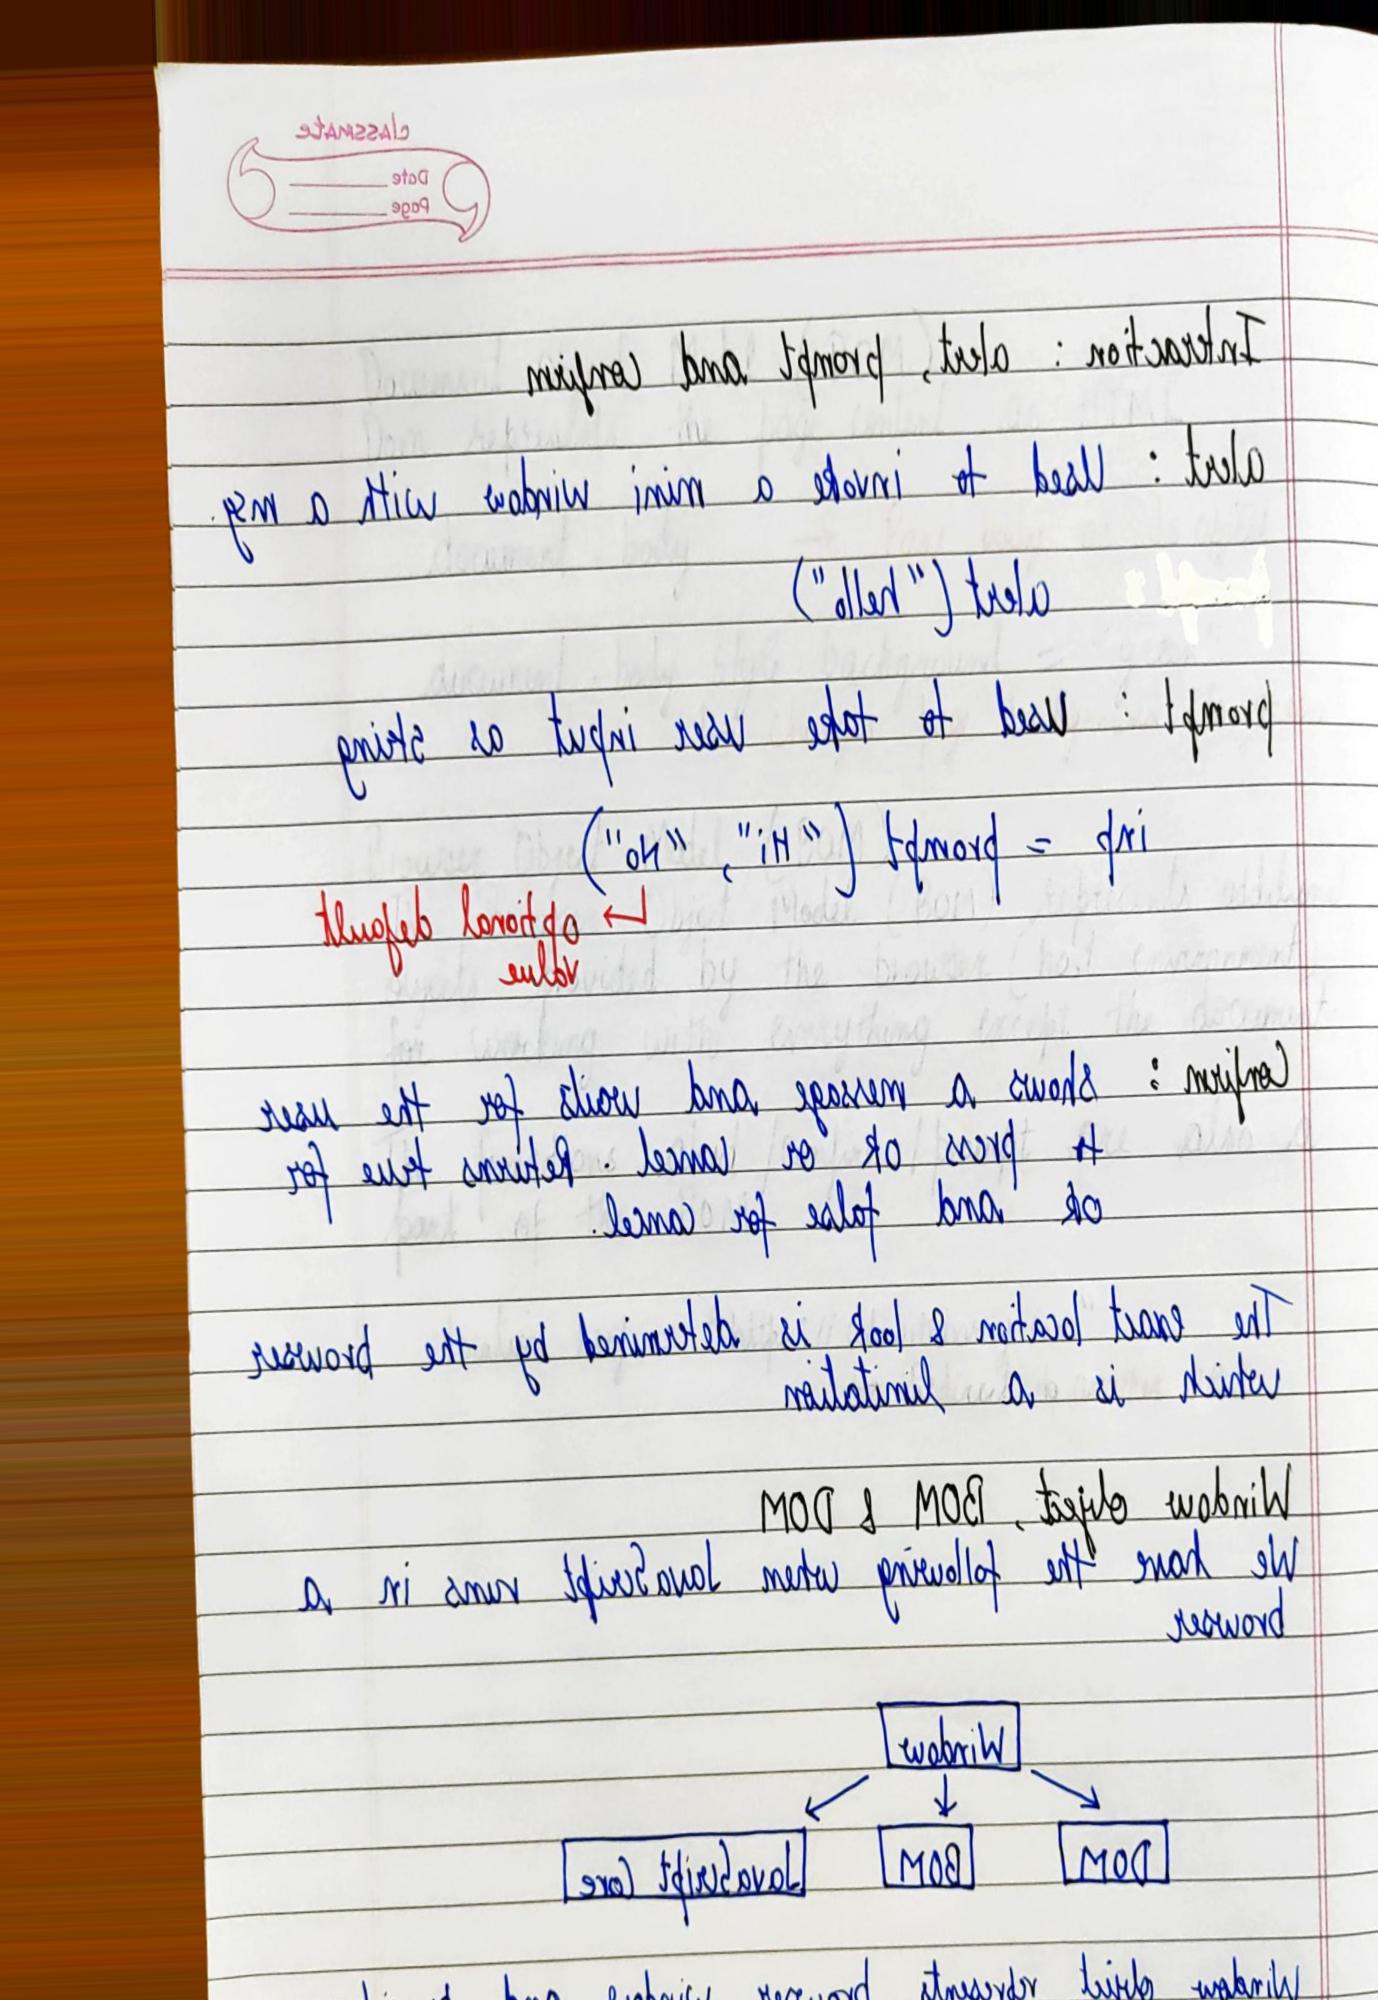 classmate
Date
Page
Interaction : alert, prompt and confirm
alert : Used to invoke a mini window with a msg.
alert ("hello")
prompt : Used to take user input as string
inp = prompt ("Hi", "No")
↳ optional default
value
Confirm : shows a message and waits for the user
to press ok or cancel. Returns true for
ok and false for cancel.
The exact location & look is determined by the browser
which is a limitation
Window object, BOM & DOM
We have the following when JavaScript runs in a
browser
Window
DOM BOM JavaScript Core
Window object represents browser window and